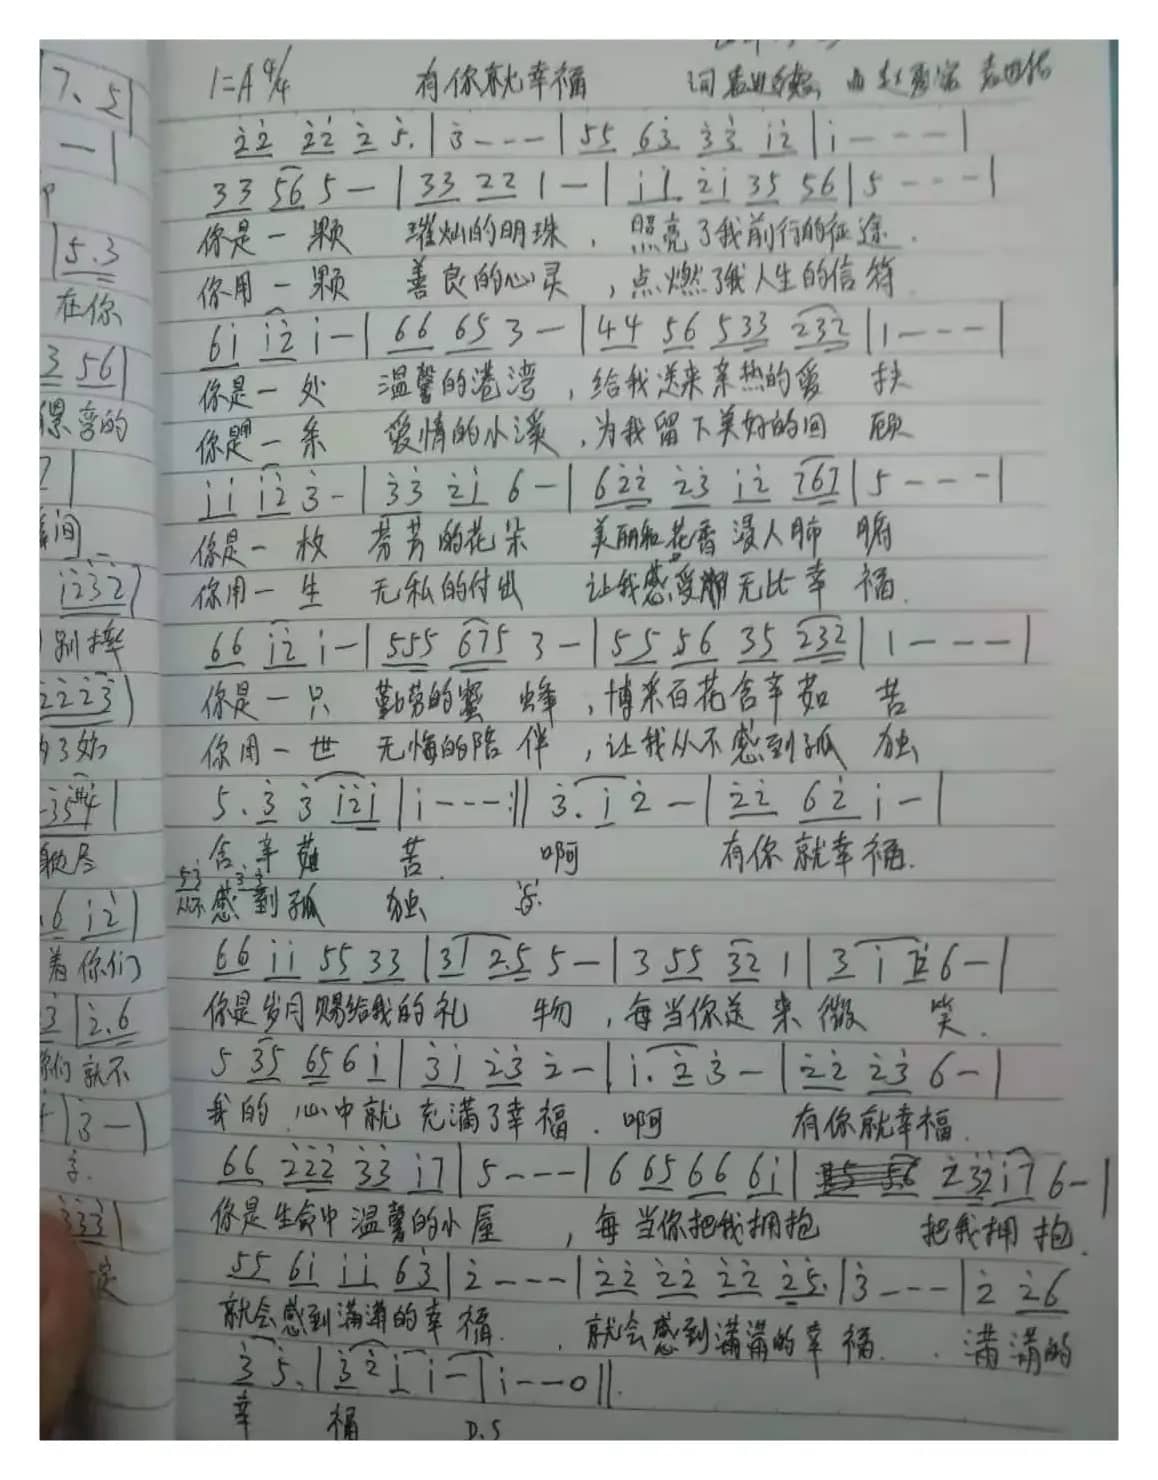 7. 5|
—|
|5.3
在你
3 56|
的
7|
间
i232|
别
22 23|
了
354|
尽
6 i2|
着你们
3|2.6
你们就不
|3—|
333|
定
1=A 4/4 有你就幸福 词 曲
22 22 2 5.|3---|55 63 33 i2|i---|
33 56 5—|33 22 1—|ii 2i 35 56|5---|
你是一颗 璀灿的明珠，照亮了我前行的征途.
你用一颗 善良的心灵，点燃了我人生的信符
6i i2 i—|66 65 3—|44 56 533 232|1---|
你是一处 温馨的港湾，给我送来亲热的爱 扶
你是一条 爱情的小溪，为我留下美好的回 顾
ii i2 3-|33 2i 6—|622 23 i2 767|5---|
你是一枚 芬芳的花朵 美丽和花香浸人肺 腑
你用一生 无私的付出 让我感受无比幸 福.
66 i2 i—|555 675 3—|55 56 35 232|1---|
你是一只 勤劳的蜜 蜂，博采百花含辛茹 苦
你用一世 无悔的陪 伴，让我从不感到孤 独
5.3 3 i2i|i---:|| 3.i 2—|22 62 i—|
含辛茹 苦. 啊 有你就幸福.
53 33
从不感到孤 独
66 ii 55 33|31 2.5 5—|3 55 32 1|3 i 6—|
你是岁月赐给我的礼 物，每当你送来微 笑.
5 35 65 6 i|3i 23 2—|i.2 3—|22 23 6—|
我的 心中就充满了幸福. 啊 有你就幸福.
66 222 33 i7|5---|6 65 66 6i| 2 32 i7 6-|
你是生命中温馨的小屋，每当你把我拥抱 把我拥抱.
55 6i ii 63|2---|22 22 22 25.|3---|2 26
就会感到满满的幸福. 就会感到满满的幸福. 满满的
3 5.|32 i i—|i--0||.
幸 福 D.S